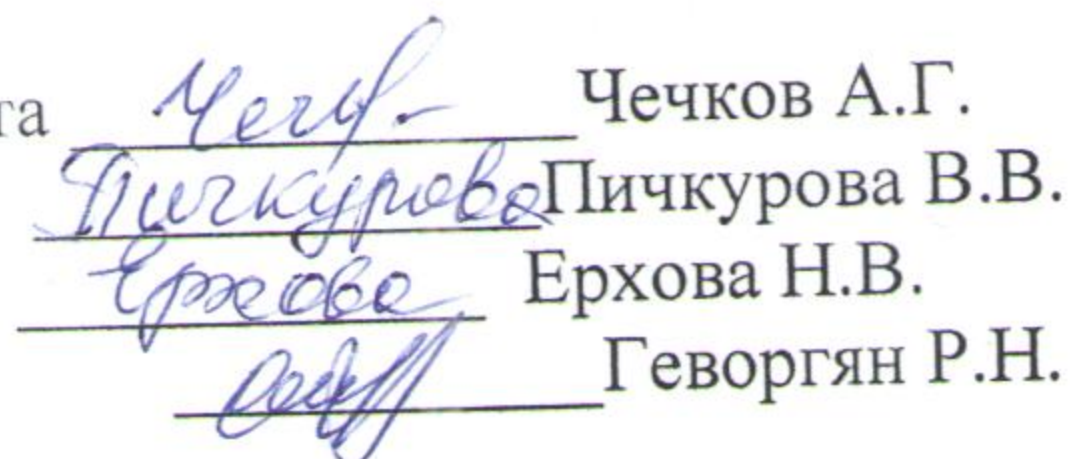 та Чечков А.Г.
Пичкурова Пичкурова В.В.
Ерхова Ерхова Н.В.
Геворгян Р.Н.